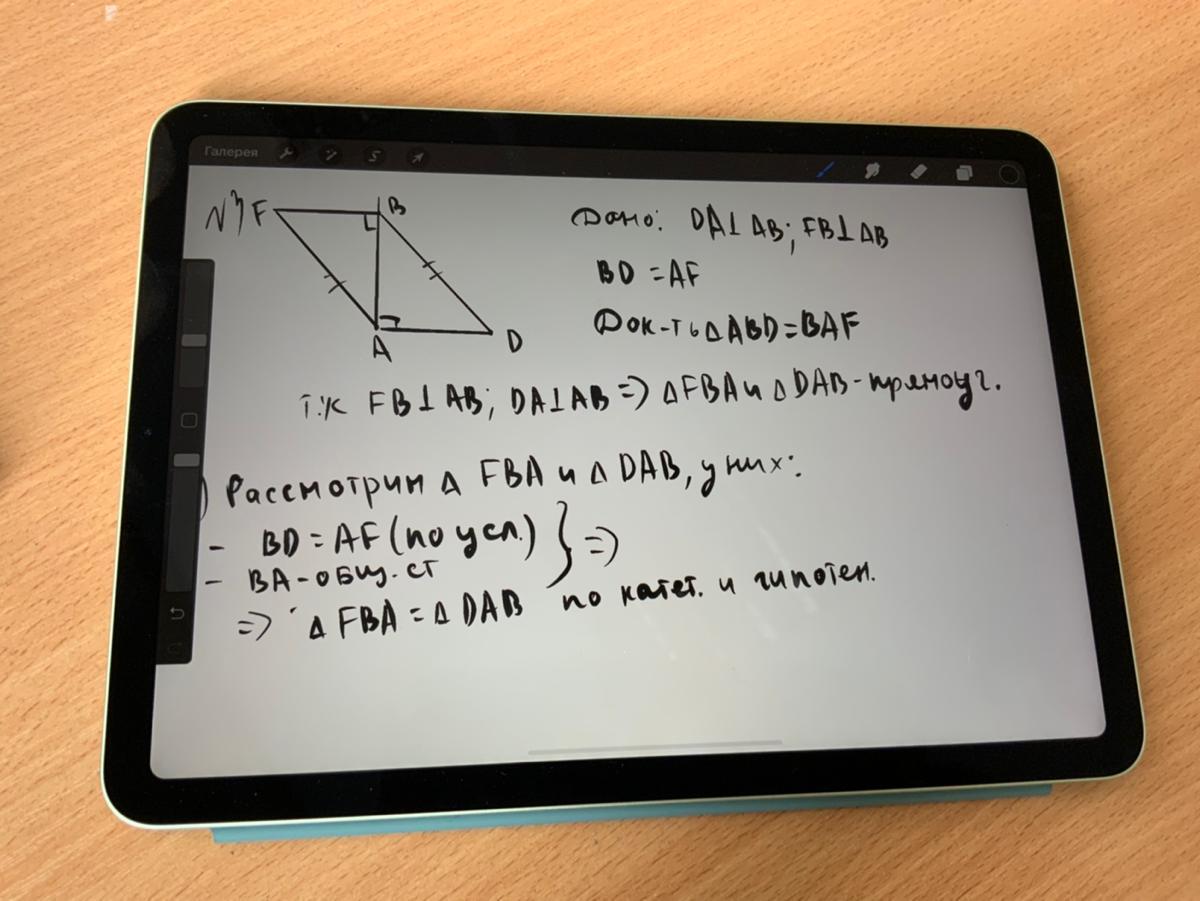 Галерея
N3 F B
A D
Дано: DA⊥AB; FB⊥AB
BD = AF
Док-ть △ABD = BAF
т.к FB⊥AB; DA⊥AB => △FBA и △DAB - прямоуг.
) Рассмотрим △ FBA и △ DAB, у них:
- BD = AF (по усл.) } =>
- BA - общ. ст
=> △ FBA = △ DAB по катет. и гипотен.